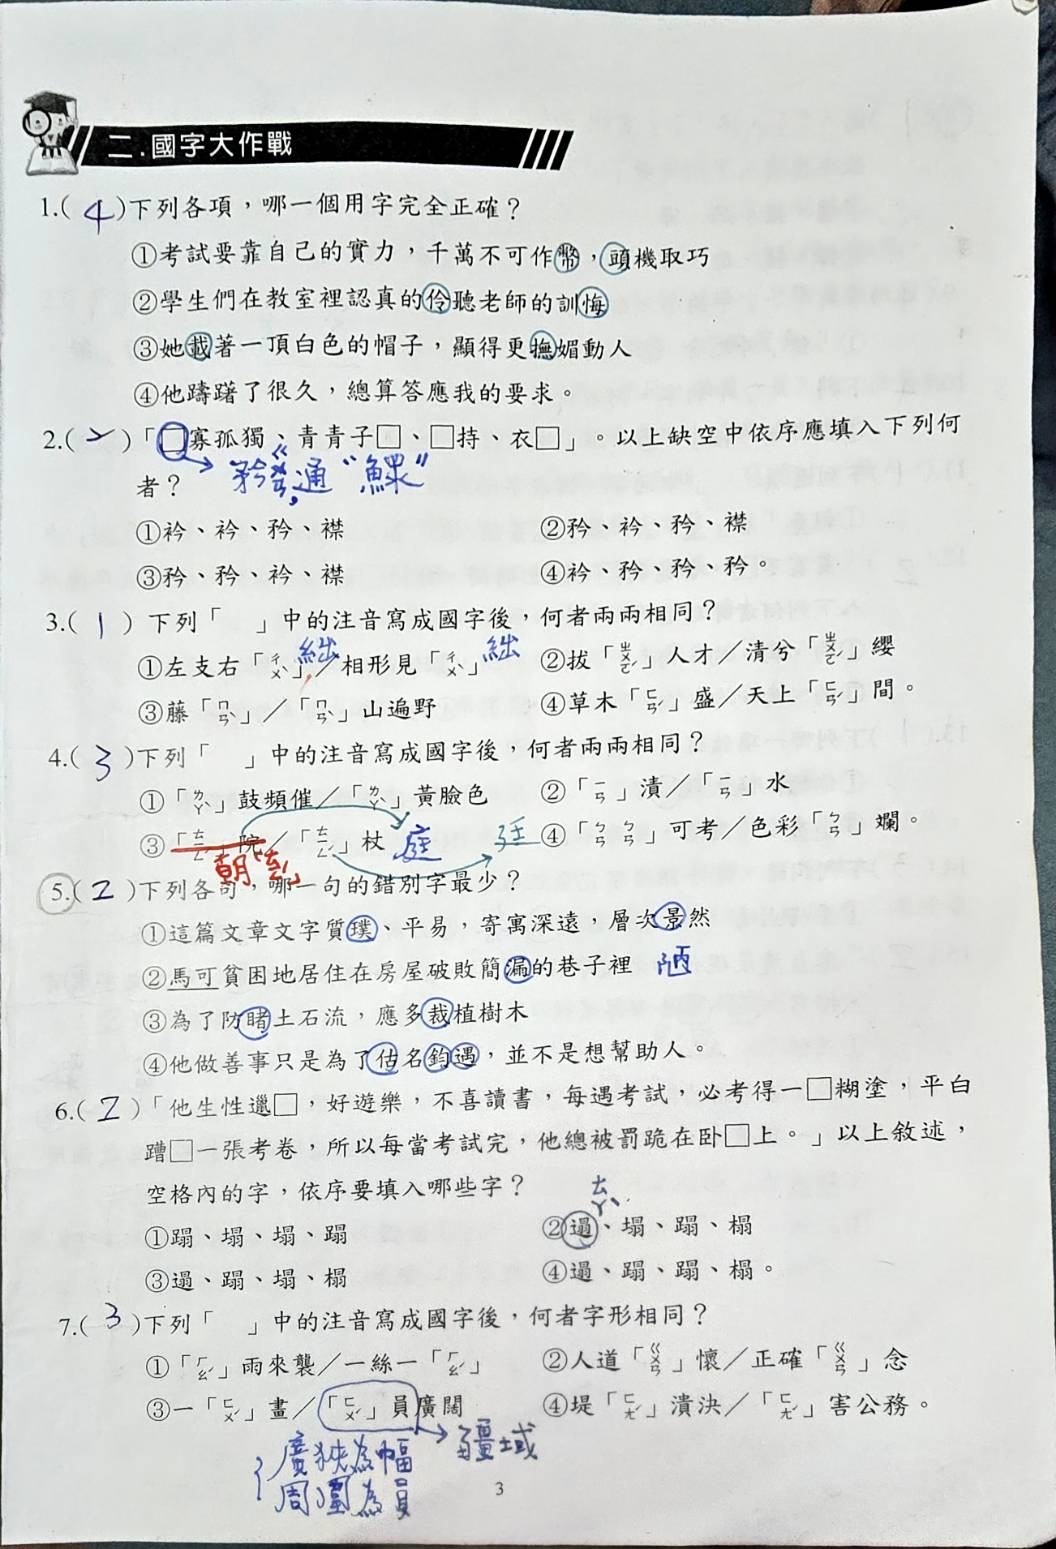 二.國字大作戰
1.( 4 )下列各項，哪一個用字完全正確？
①考試要靠自己的實力，千萬不可作幣，頭機取巧
②學生們在教室裡認真的伶聽老師的訓悔
③她載著一頂白色的帽子，顯得更撫媚動人
④他躊躇了很久，總算答應我的要求。
2.( 2 )「□寡孤獨、青青子□、□持、衣□」。以上缺空中依序應填入下列何
者？
矜ㄍㄨㄢ，通“鰥”
①衿、衿、矜、襟
②矜、衿、矜、襟
③矜、矜、衿、襟
④衿、矜、矜、矜。
3.( 1 ) 下列「 」中的注音寫成國字後，何者兩兩相同？
①左支右「ㄔㄨˋ」／相形見「ㄔㄨˋ」
絀
絀
②拔「ㄓㄨㄛˊ」人才／清兮「ㄓㄨㄛˊ」纓
③藤「ㄇㄢˋ」／「ㄇㄢˋ」山遍野
④草木「ㄈㄢˊ」盛／天上「ㄈㄢˊ」間。
4.( 3 )下列「 」中的注音寫成國字後，何者兩兩相同？
①「ㄌㄚˋ」鼓頻催／「ㄌㄚˋ」黃臉色
②「ㄧㄢ」漬／「ㄧㄢ」水
③「ㄊㄧㄥˊ」院／「ㄊㄧㄥˊ」杖
庭
廷
朝
④「ㄅㄢ ㄅㄢ」可考／色彩「ㄅㄢ」斕。
5.( 2 )下列各句，哪一句的錯別字最少？
①這篇文章文字質璞、平易，寄寓深遠，層次景然
②馬可貧困地居住在房屋破敗簡漏的巷子裡
陋
③為了防睹土石流，應多裁植樹木
④他做善事只是為了估名鈞遇，並不是想幫助人。
6.( 2 )「他生性邋□，好遊樂，不喜讀書，每遇考試，必考得一□糊塗，平白
蹧□一張考卷，所以每當考試完，他總被罰跪在卧□上。」以上敘述，
空格內的字，依序要填入哪些字？
ㄊㄚˋ
①蹋、塌、塌、蹋
②遢、塌、蹋、榻
③遢、蹋、塌、榻
④遢、蹋、蹋、榻。
7.( 3 )下列「 」中的注音寫成國字後，何者字形相同？
①「ㄏㄠˊ」雨來襲／一絲一「ㄏㄠˊ」
②人道「ㄍㄨㄢ」懷／正確「ㄍㄨㄢ」念
③一「ㄈㄨˊ」畫／「ㄈㄨˊ」員廣闊
④堤「ㄈㄤˊ」潰決／「ㄈㄤˊ」害公務。
疆域
廣狹為幅
周圍為員
3